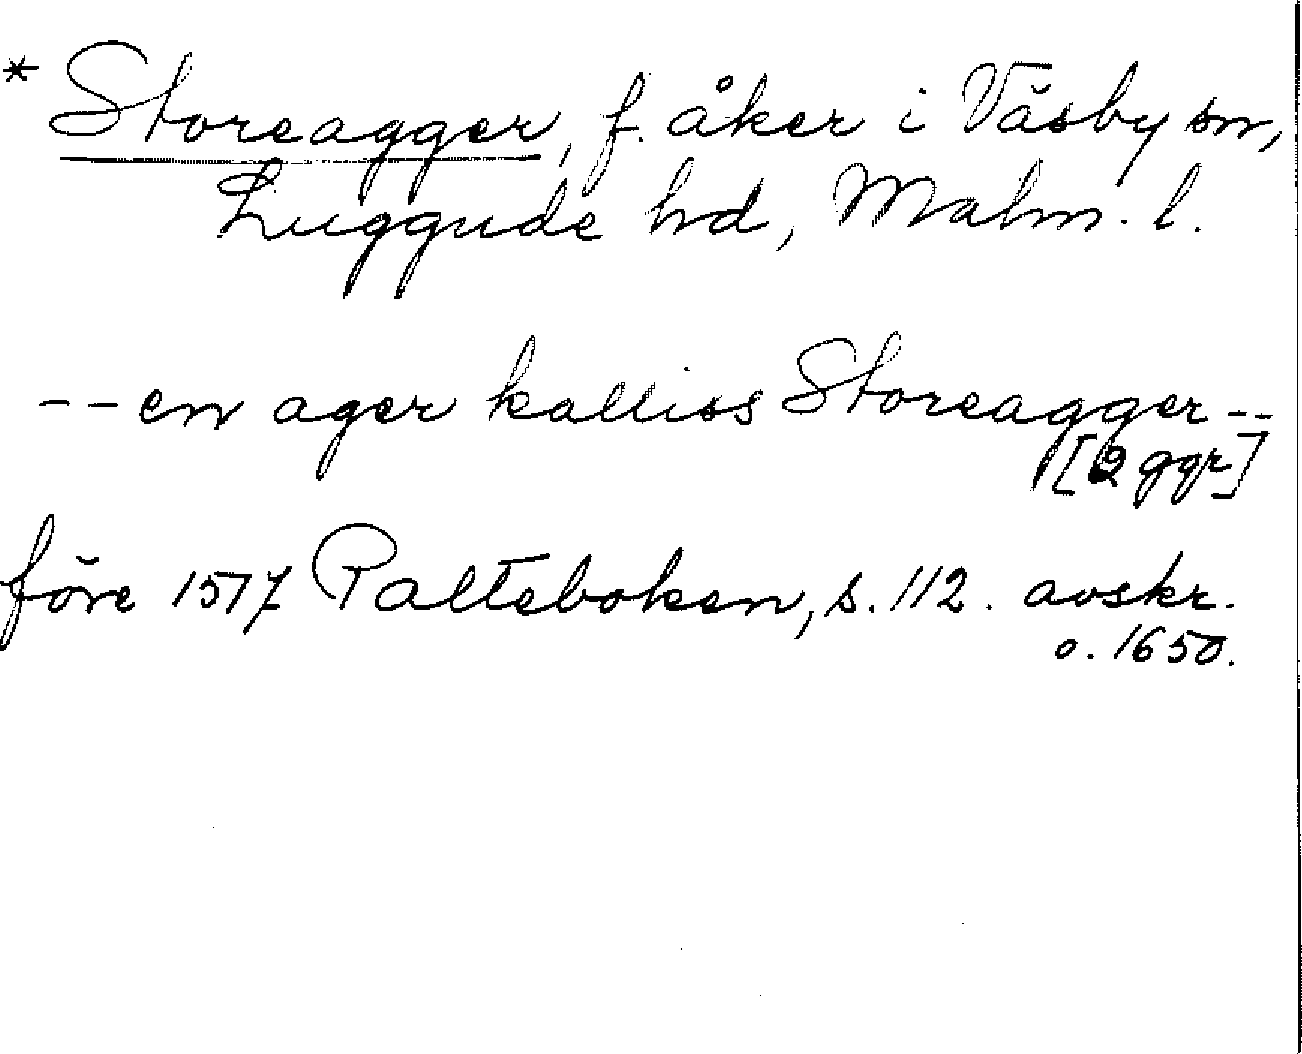 * Storeagger, f. åker i Väsby sn,
Luggude hd, Malm. l.
-- en ager kalliss Storeagger --
[2 ggr]
före 1517 Palteboken, s. 112. avskr.
o. 1650.